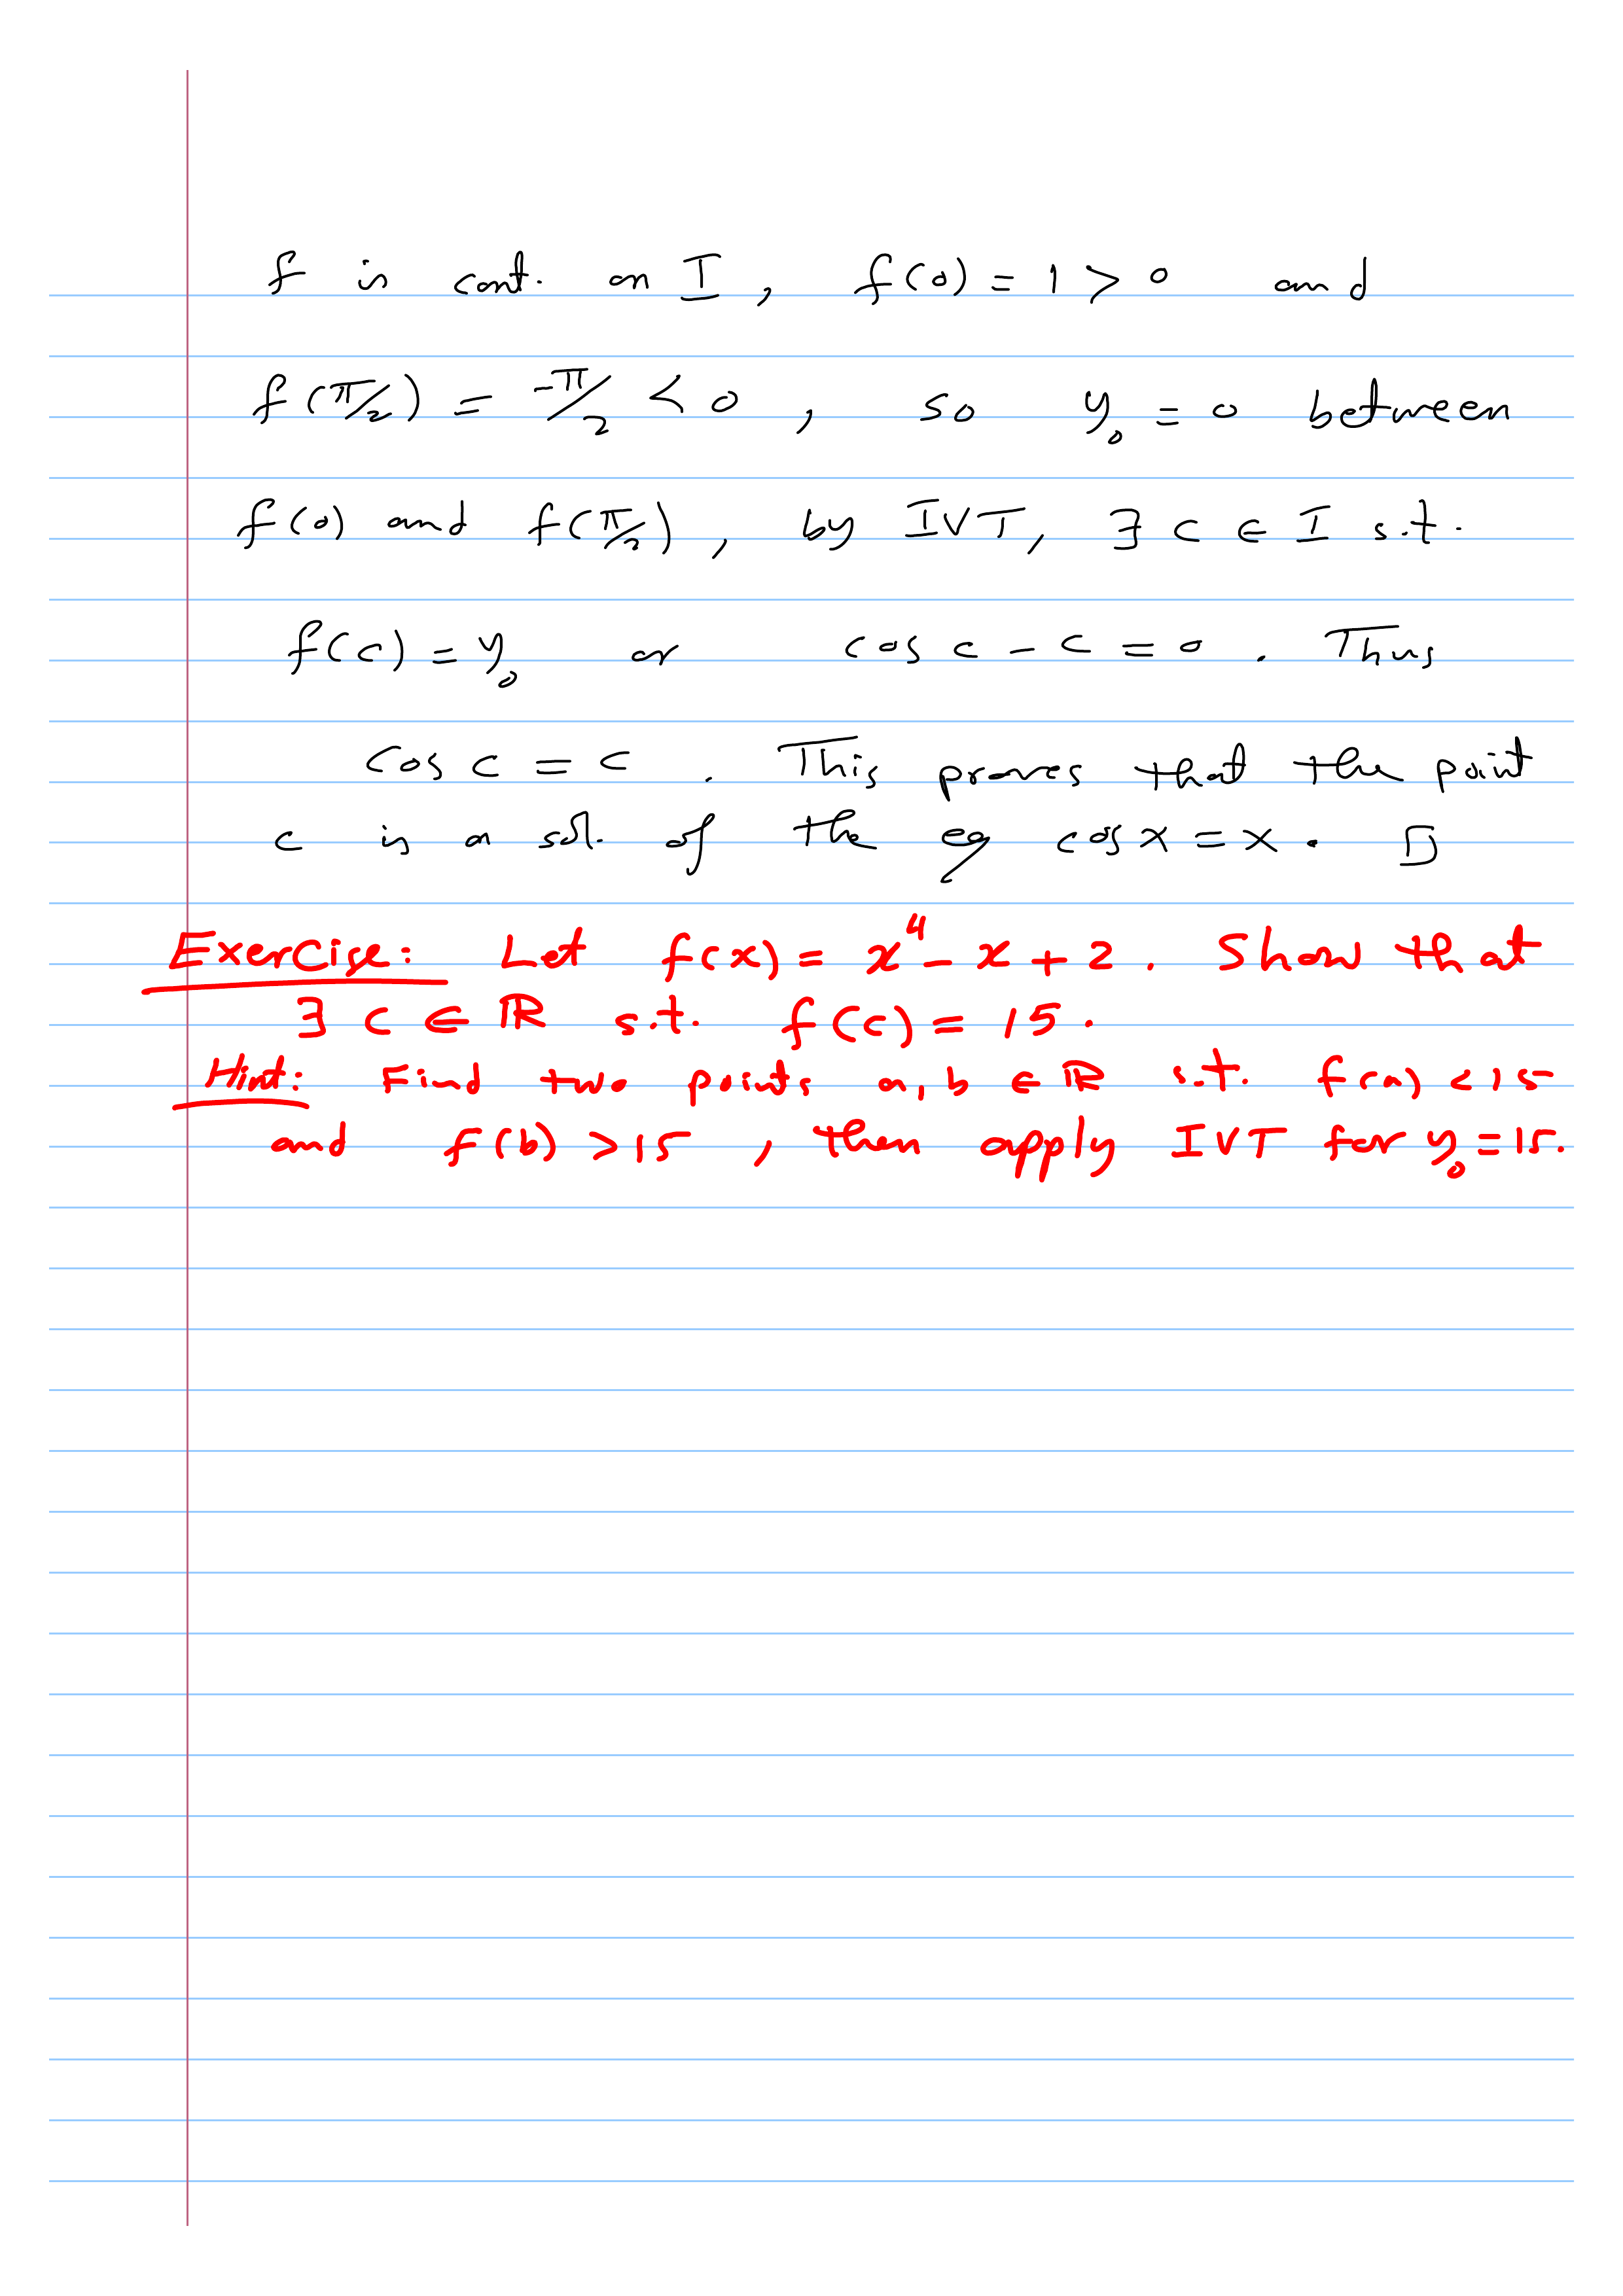 f is cont. on I, f(0) = 1 > 0 and
f(π/2) = -π/2 < 0, so y₀ = 0 between
f(0) and f(π/2), by IVT, ∃ c ∈ I s.t.
f(c) = y₀ or cos c - c = 0. Thus
cos c = c. This proves that the point
c is a sol. of the eq cos x = x. □
Exercise: Let f(x) = x⁴ - x + 2. Show that
∃ c ∈ ℝ s.t. f(c) = 15.
Hint: Find two points a, b ∈ ℝ s.t. f(a) < 15
and f(b) > 15, then apply IVT for y₀ = 15.